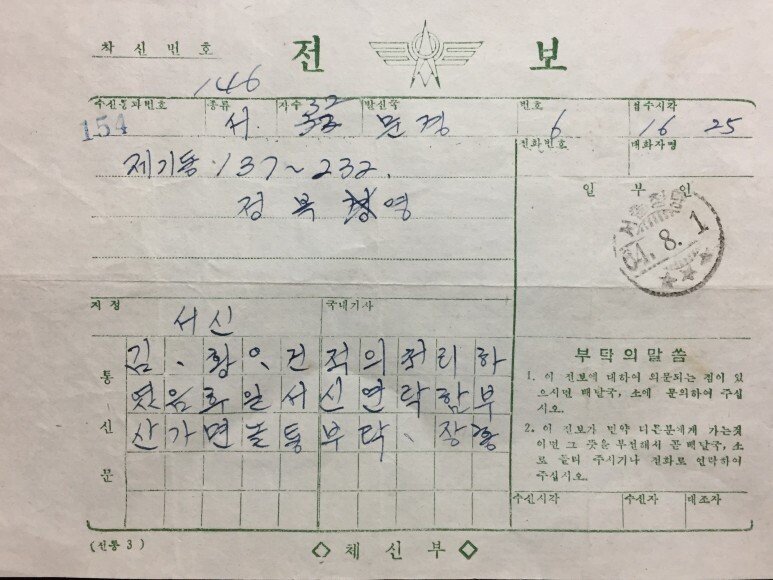 착신번호
전보
146
수신통과번호 종류 자수 발신국 번호 접수시각
154 서. 32 문경 6 16 25
전화번호 대화자명
제기동·137~232.
정복영
일부인
64. 8. 1
지정 국내기사
서신
통신문
김、황、건적의처리하
였음화일서신연락함부
산가면놀통부탁、장흥
부탁의말씀
1. 이 전보에 대하여 의문되는 점이 있
으시면 배달국, 소에 문의하여 주십
시오.
2. 이 전보가 만약 다른분에게 가는것
이면 그 뜻을 부전해서 곧 배달국, 소
로 돌려 주시거나 전화로 연락하여
주십시오.
수신시각 수신자 대조자
(전통 3)
체신부